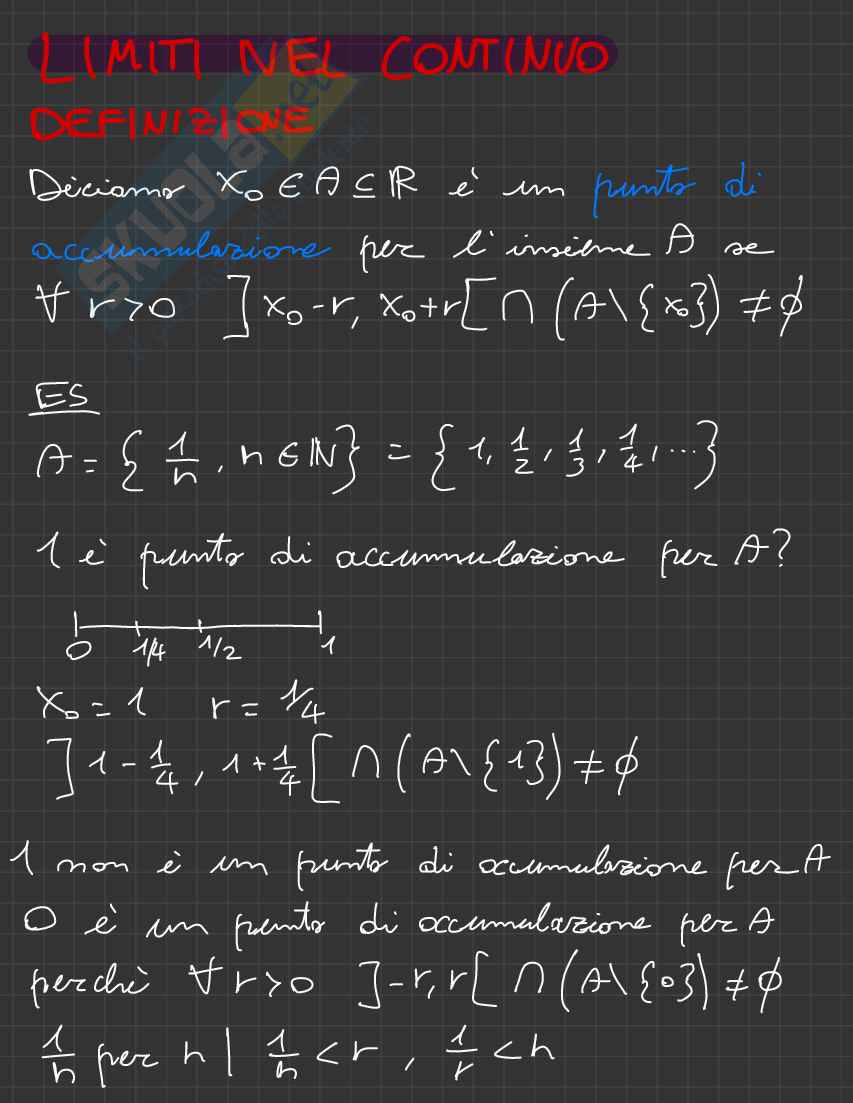 LIMITI NEL CONTINUO
DEFINIZIONE
Diciamo x₀ ∈ A ⊆ ℝ è un punto di
accummulazione per l'insieme A se
∀ r>0 ]x₀-r, x₀+r[ ∩ (A\{x₀}) ≠ ∅
ES
A = { 1/n , n ∈ ℕ} = { 1, 1/2, 1/3, 1/4, ...}
1 è punto di accummulazione per A?
0 1/4 1/2 1
x₀ = 1 r = 1/4
]1 - 1/4, 1 + 1/4[ ∩ (A\{1}) ≠ ∅
1 non è un punto di accumulazione per A
0 è un punto di accumulazione per A
perchè ∀ r>0 ]-r, r[ ∩ (A\{0}) ≠ ∅
1/n per n | 1/n < r , 1/r < n
SKUOLA.net